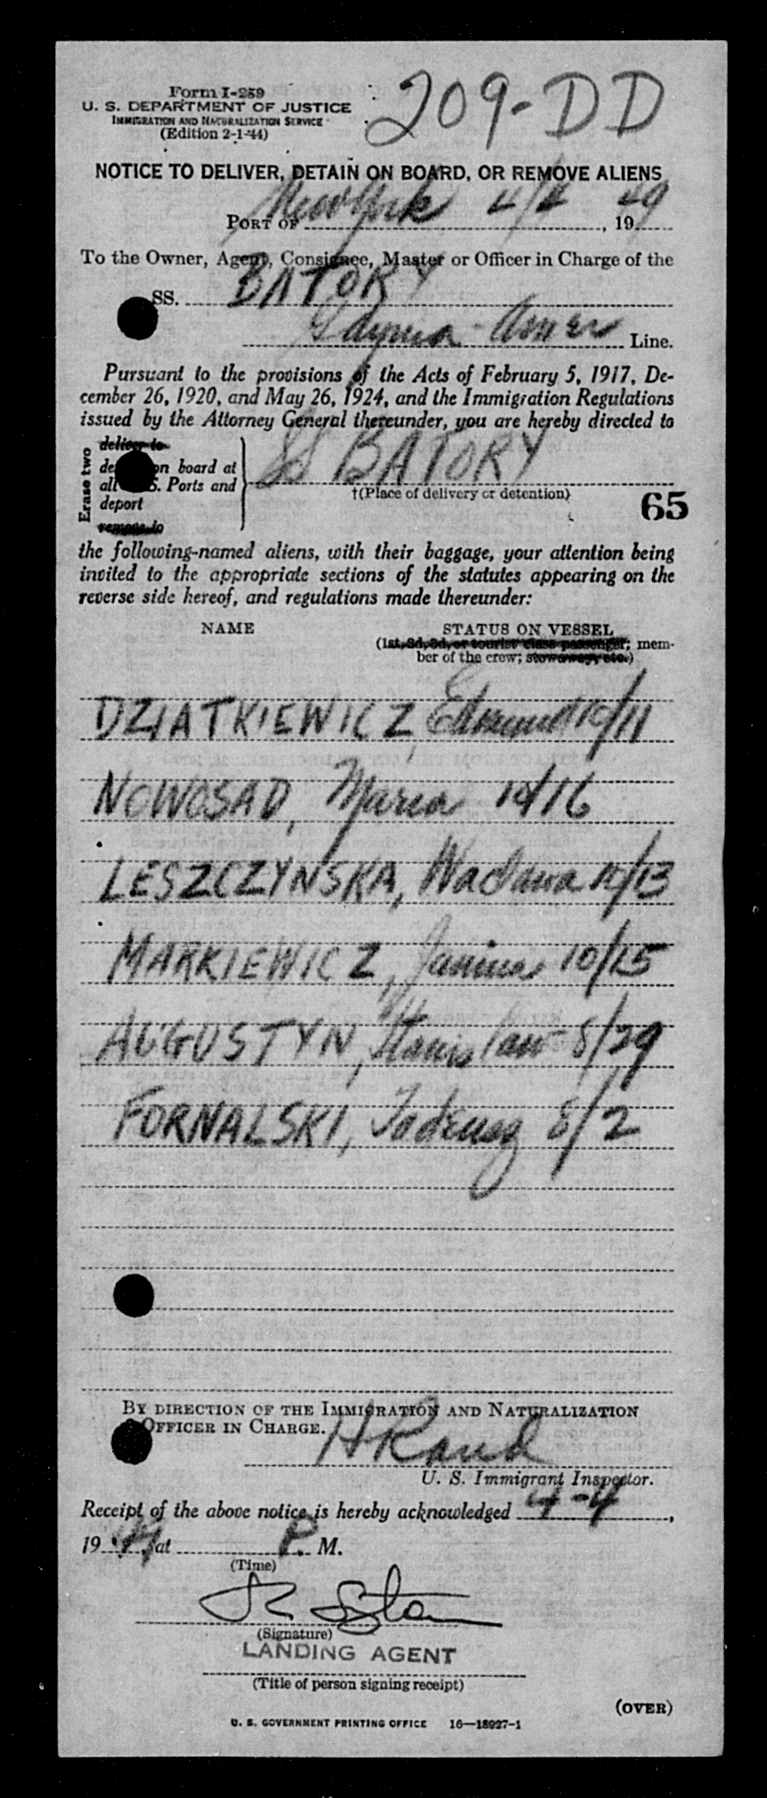 Form I-259
U. S. DEPARTMENT OF JUSTICE
IMMIGRATION AND NATURALIZATION SERVICE
(Edition 2-1-44)
209-DD
NOTICE TO DELIVER, DETAIN ON BOARD, OR REMOVE ALIENS
PORT OF New York 4/4, 1949
To the Owner, Agent, Consignee, Master or Officer in Charge of the
SS. BATORY
Gdynia - Amer Line.
Pursuant to the provisions of the Acts of February 5, 1917, De-
cember 26, 1920, and May 26, 1924, and the Immigration Regulations
issued by the Attorney General thereunder, you are hereby directed to
Erase two
deliver to
on board at
all S. Ports and
deport
remove to
SS BATORY
†(Place of delivery or detention)
65
the following-named aliens, with their baggage, your attention being
invited to the appropriate sections of the statutes appearing on the
reverse side hereof, and regulations made thereunder:
NAME STATUS ON VESSEL
(1st, 2d, 3d, or tourist class passenger; mem-
ber of the crew; stowaway, etc.)
DZIATKIEWICZ, Edmund 10/11
NOWOSAD, Maria 10/16
LESZCZYNSKA, 10/13
MARKIEWICZ, Janina 10/15
AUGUSTYN, Stanislaw 8/29
FORNALSKI, Tadeusz 8/2
BY DIRECTION OF THE IMMIGRATION AND NATURALIZATION
OFFICER IN CHARGE.
H Rand
U. S. Immigrant Inspector.
Receipt of the above notice is hereby acknowledged 4-4,
19 at P. M.
(Time)
(Signature)
LANDING AGENT
(Title of person signing receipt)
(OVER)
U. S. GOVERNMENT PRINTING OFFICE 16—18927-1